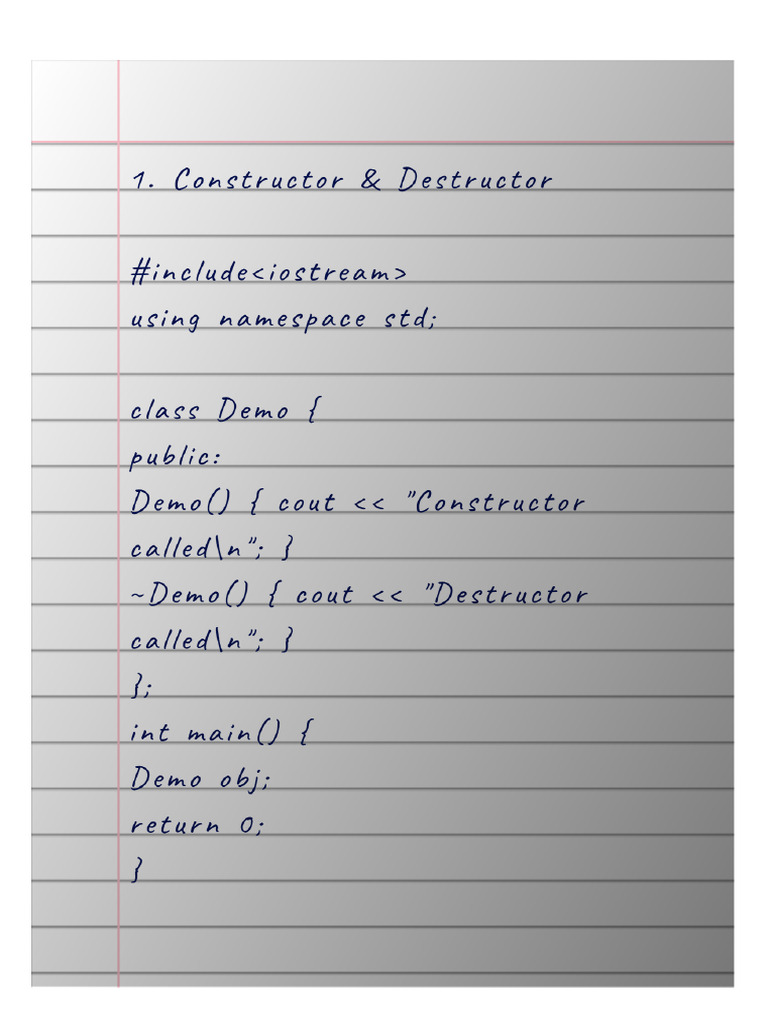 1. Constructor & Destructor
#include<iostream>
using namespace std;
class Demo {
public:
Demo() { cout << "Constructor
called\n"; }
~Demo() { cout << "Destructor
called\n"; }
};
int main() {
Demo obj;
return 0;
}